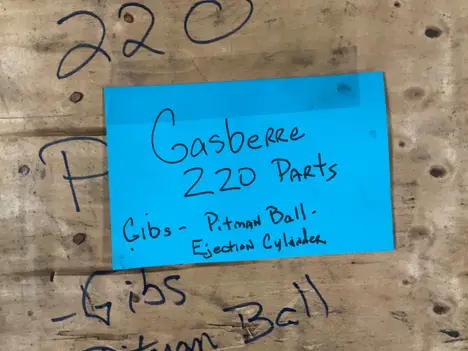 220
P
Gasberre
220 Parts
Gibs - Pitman Ball -
Ejection Cylinder
- Gibs
Pitman Ball